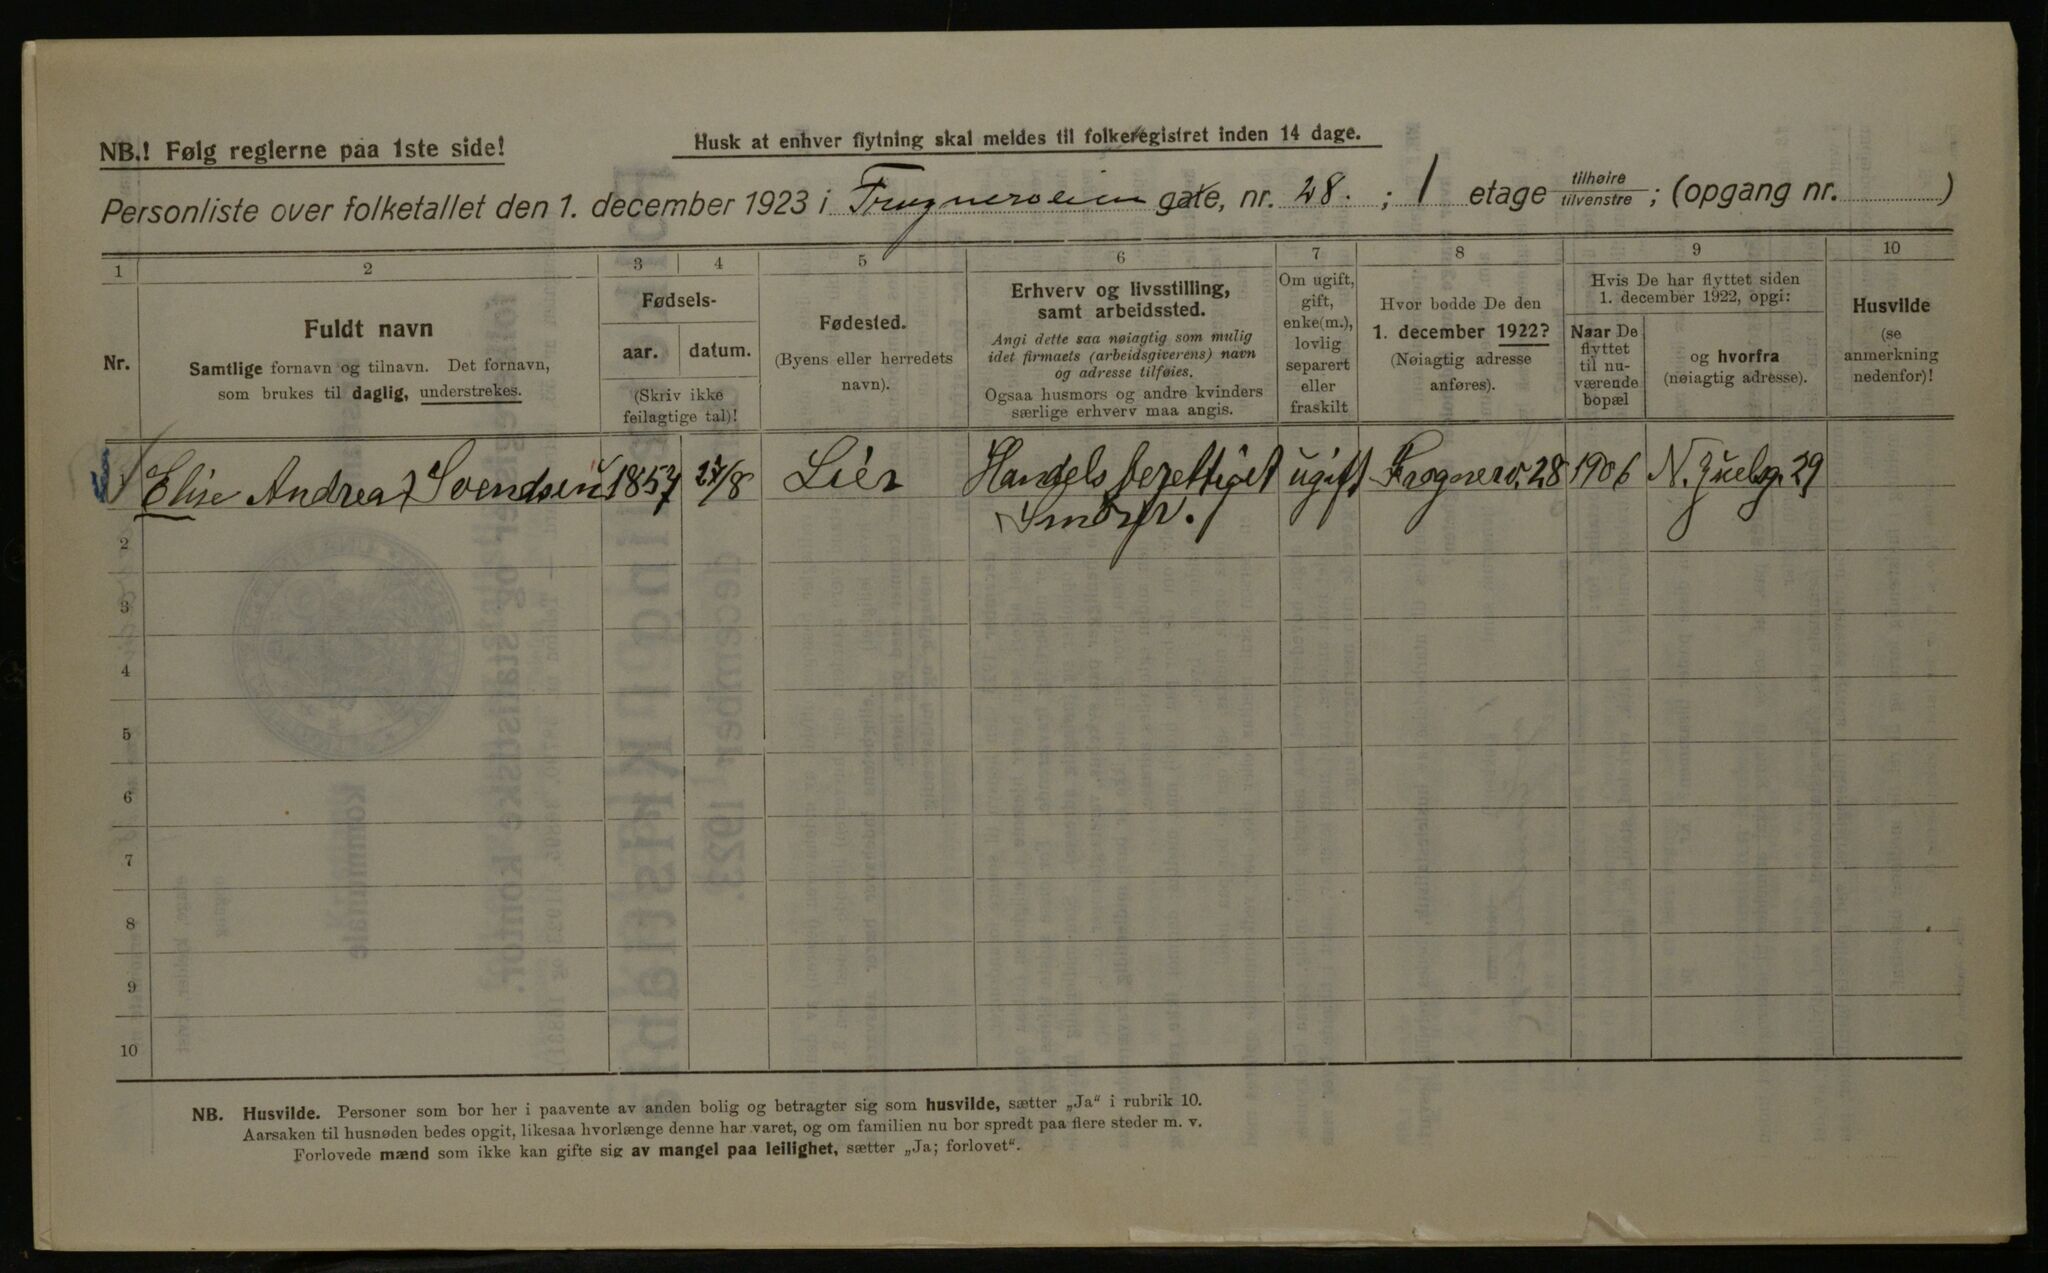 NB.! Følg reglerne paa 1ste side!
Husk at enhver flytning skal meldes til folkeregistret inden 14 dage.
Personliste over folketallet den 1. december 1923 i Frogneroeien gate, nr. 28. ; 1 etage tilhøire/tilvenstre ; (opgang nr. )
1 2 3 4 5 6 7 8 9 10
Nr.
Fuldt navn
Samtlige fornavn og tilnavn. Det fornavn,
som brukes til daglig, understrekes.
Fødsels-
aar. datum.
(Skriv ikke
feilagtige tal)!
Fødested.
(Byens eller herredets
navn).
Erhverv og livsstilling,
samt arbeidssted.
Angi dette saa nøiagtig som mulig
idet firmaets (arbeidsgiverens) navn
og adresse tilføies.
Ogsaa husmors og andre kvinders
særlige erhverv maa angis.
Om ugift,
gift,
enke(m.),
lovlig
separert
eller
fraskilt
Hvor bodde De den
1. december 1922?
(Nøiagtig adresse
anføres).
Hvis De har flyttet siden
1. december 1922, opgi:
Naar De
flyttet
til nu-
værende
bopæl
og hvorfra
(nøiagtig adresse).
Husvilde
(se
anmerkning
nedenfor)!
1 Elise Andrea Svendsen 1857 /8 Lier Handelsberettiget ugift Frognerv. 28 1906 N. Juelsg. 29
2
3
4
5
6
7
8
9
10
NB. Husvilde. Personer som bor her i paavente av anden bolig og betragter sig som husvilde, sætter „Ja“ i rubrik 10.
Aarsaken til husnøden bedes opgit, likesaa hvorlænge denne har varet, og om familien nu bor spredt paa flere steder m. v.
Forlovede mænd som ikke kan gifte sig av mangel paa leilighet, sætter „Ja; forlovet“.